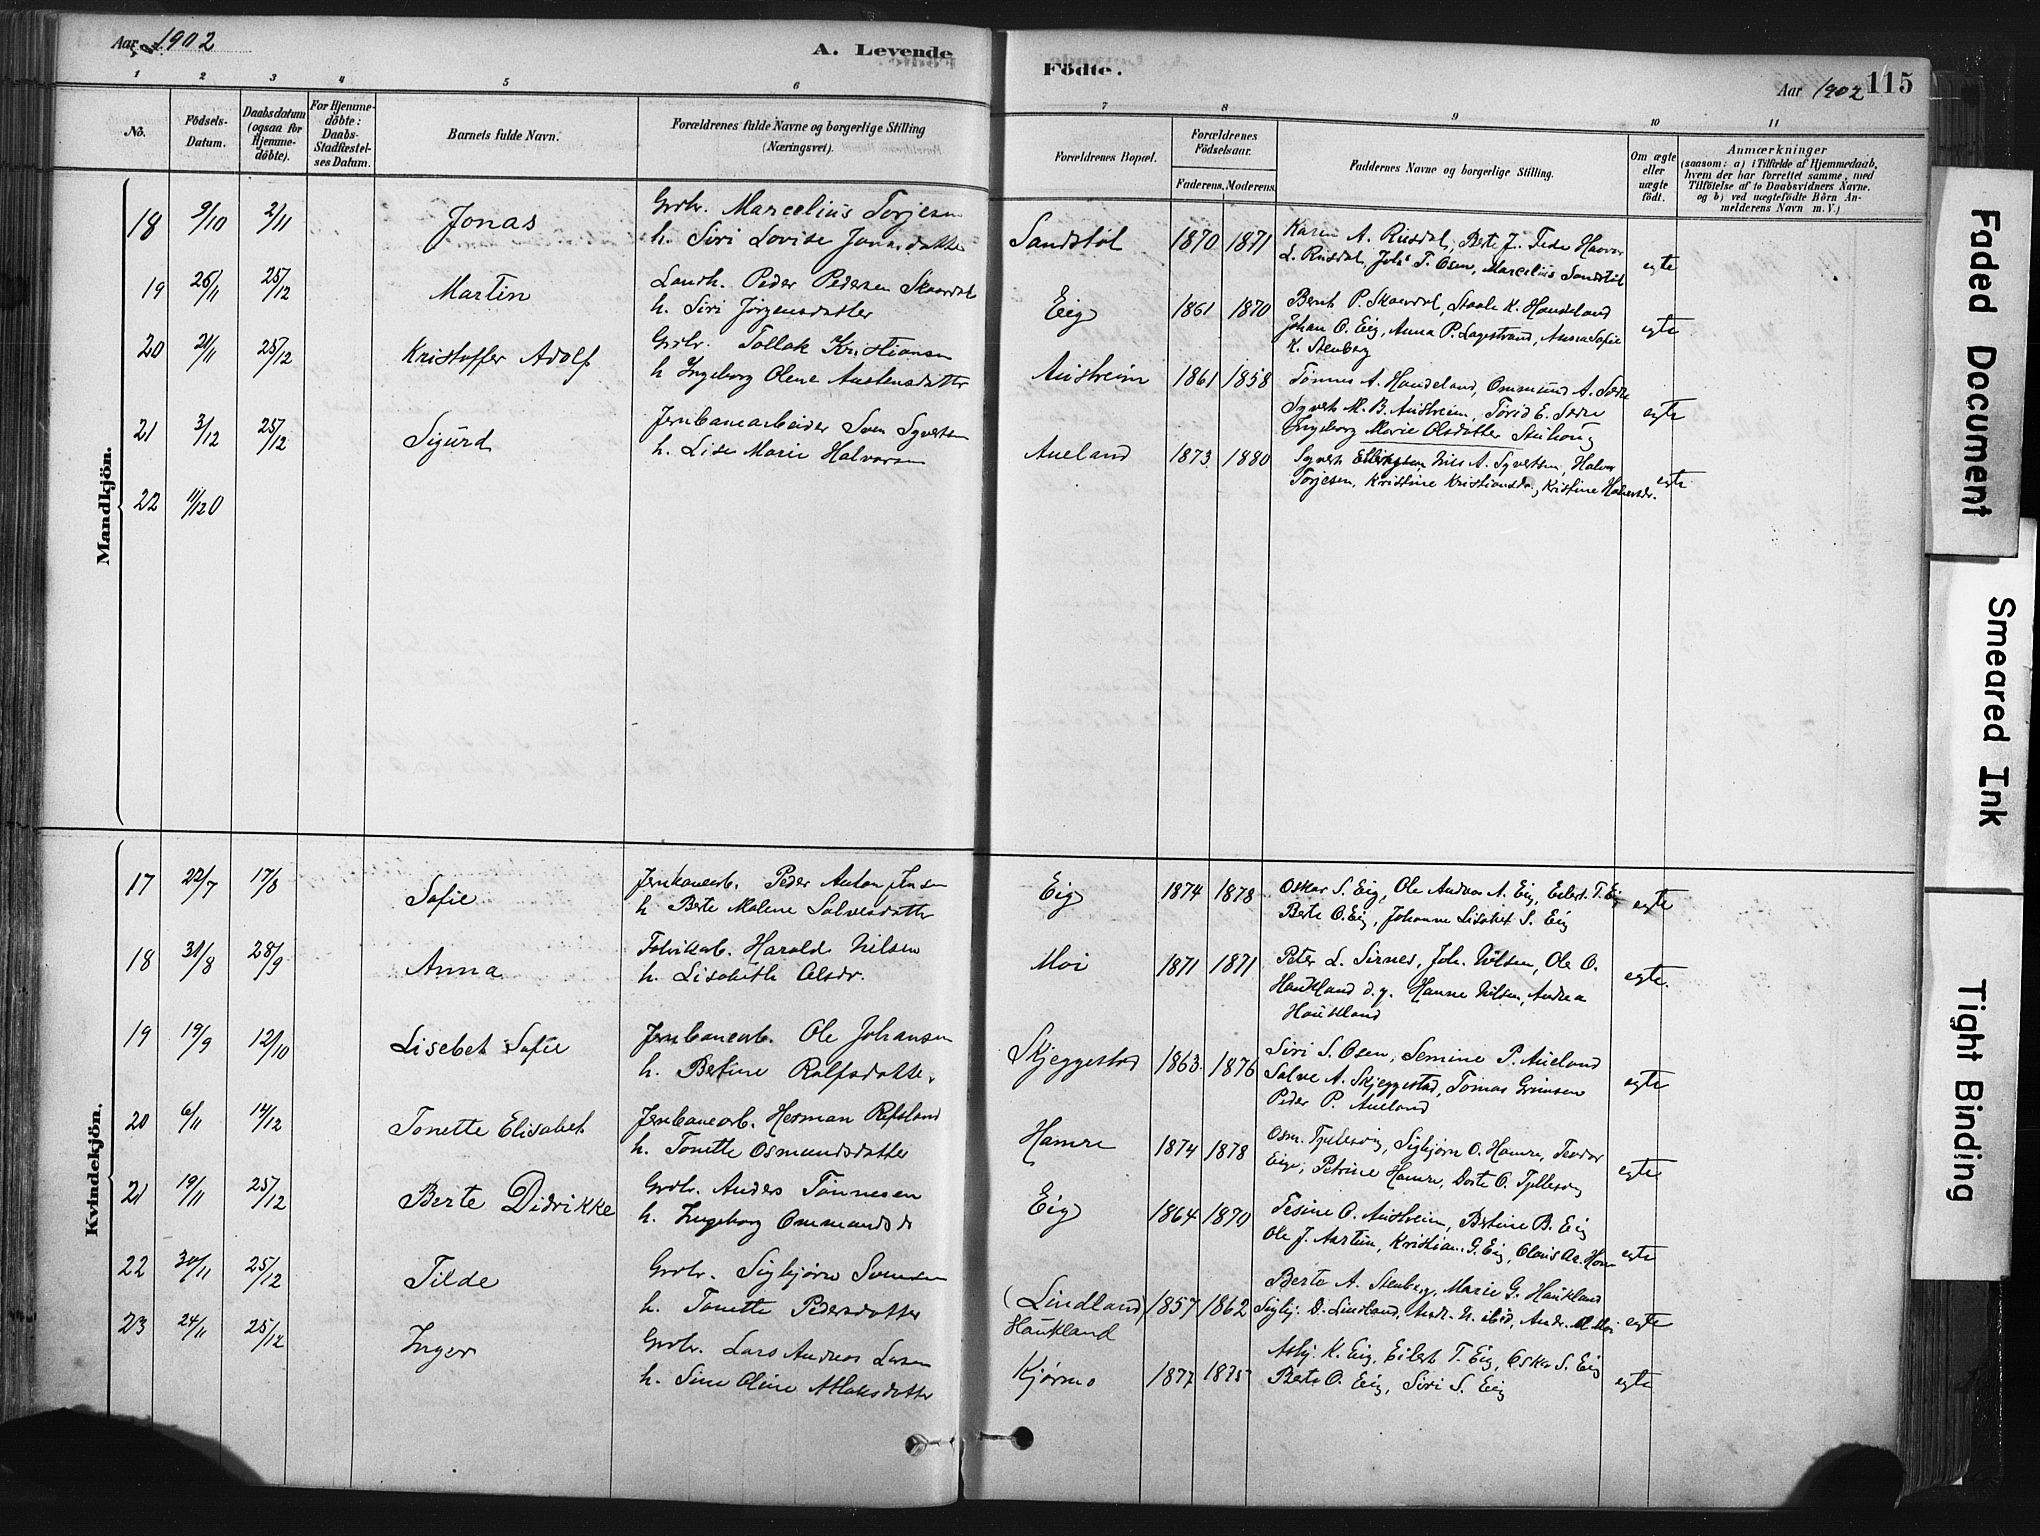 Aar 1902
A. Levende
Födte.
Aar 1902
115
1 2 3 4 5 6 7 8 9 10 11
No.
Födsels-Datum.
Daabsdatum (ogsaa for Hjemme-döbte).
For Hjemme-döbte: Daabs-Stadfæstel-ses Datum.
Barnets fulde Navn.
Forældrenes fulde Navne og borgerlige Stilling
(Næringsvei).
Forældrenes Bopæl.
Forældrenes Födselsaar.
Faderens. Moderens.
Faddernes Navne og borgerlige Stilling.
Om ægte eller uægte födt.
Anmærkninger
(saasom: a) i Tilfælde af Hjemmedaab,
hvem der har forrettet samme, med
Tilföielse af to Daabsvidners Navne.
og b) ved uægtefödte Börn An-
melderens Navn m. V.)
Mandkjön.
18 9/10 2/11 Jonas Grdbr. Marcelius Torjesen
h. Siri Lovise Jonasdatter
Sandstøl 1870 1871 Karen A. Risdal, Berte J. Fede
L. Risdal, T. Osen, Marcelius Sandstøl
egte
19 26/11 25/12 Martin Landh. Peder Pedersen Skaardal
h. Siri Jörgensdatter
Eig 1861 1870 Bernt P. Skaardal, Staale K. Haukland
Johan O. Eig, Anna P. Lagestrand, Anna Sofie
K. Stenberg
egte
20 21/11 25/12 Kristoffer Adolf Grdbr. Tollak Kristiansen
h. Ingeborg Olene Austensdatter
Austreim 1861 1858 Tönnes A. Haukeland, Ommund A.
Syvert M. B. Austreim, Torid E.
Ingeborg Marie Olsdatter
egte
21 3/12 25/12 Sigurd Jernbanearbeider Sven Syvertsen
h. Lise Marie Halvorsen
Aueland 1873 1880 Syvert Ellingsen, Nils A. Syvertsen, Halvor
Torjesen, Kristine Kristiansdr., Kristine Halvorsdr.
egte
22 11/120
Kvindekjön.
17 22/7 17/8 Sofie Jernbanearb. Peder Anton Jensen
h. Berte Malene Salvesdatter
Eig 1874 1878 Oskar S. Eig, Ole Andreas A. Eig, Eilert T. Eig
Berte O. Eig, Johanne Lisabet S. Eig
egte
18 31/8 28/9 Anna Fabrikarb. Harald Nilsen
h. Lisabeth Olsdr.
Moi 1871 1871 Peter L. Sirnes, Joh. Nilsen, Ole O.
Haukland d. y. Hanne Nilsen, Andrea
Haukland
egte.
19 19/9 12/10 Lisebet Sofie Jernbanearb. Ole Johansen
h. Bertine Rolfsdatter
Skjeggestad 1863 1876 Siri S. Osen, Semine P. Aueland
Salve A. Skjeggestad, Tomas Grimsen
Peder P. Aueland
egte
20 6/11 14/12 Tonette Elisabet Jernbanearb. Herman Refsland
h. Tonette Osmundsdatter
Hamre 1874 1878 Osm. Tjellesvig, Sigbjørn O. Hamre, Teodor
Eige, Petrine Hamre, Dorte O. Tjellesvig
egte
21 19/11 25/12 Berte Didrikke Grdbr. Anders Tönnesen
h. Ingeborg Ommundsdr
Eig 1864 1870 Tesine O. Austreim, Bertine B. Eig
Ole J. Aartun, Kristian G. Eig,
egte
22 30/11 25/12 Tilde Grdbr. Sigbjørn
h. Tonette Pedersdatter
(Lindland) 1857 1862
Haukland
Berte A. Stenberg, Marie G. Haukland
Sigbj. D. Lindland, Andr. N. ibid, Andr. Moi
egte
23 24/11 25/12 Inger Grdbr. Lars Andreas Larsen
h. Sine Oline Atlaksdatter
Kjørmo 1877 1875 Asbj. K. Eig, Eilert T. Eig, Oskar S. Eig
Berte O. Eig, Siri S. Eig
egte
Faded Document
Smeared Ink
Tight Binding